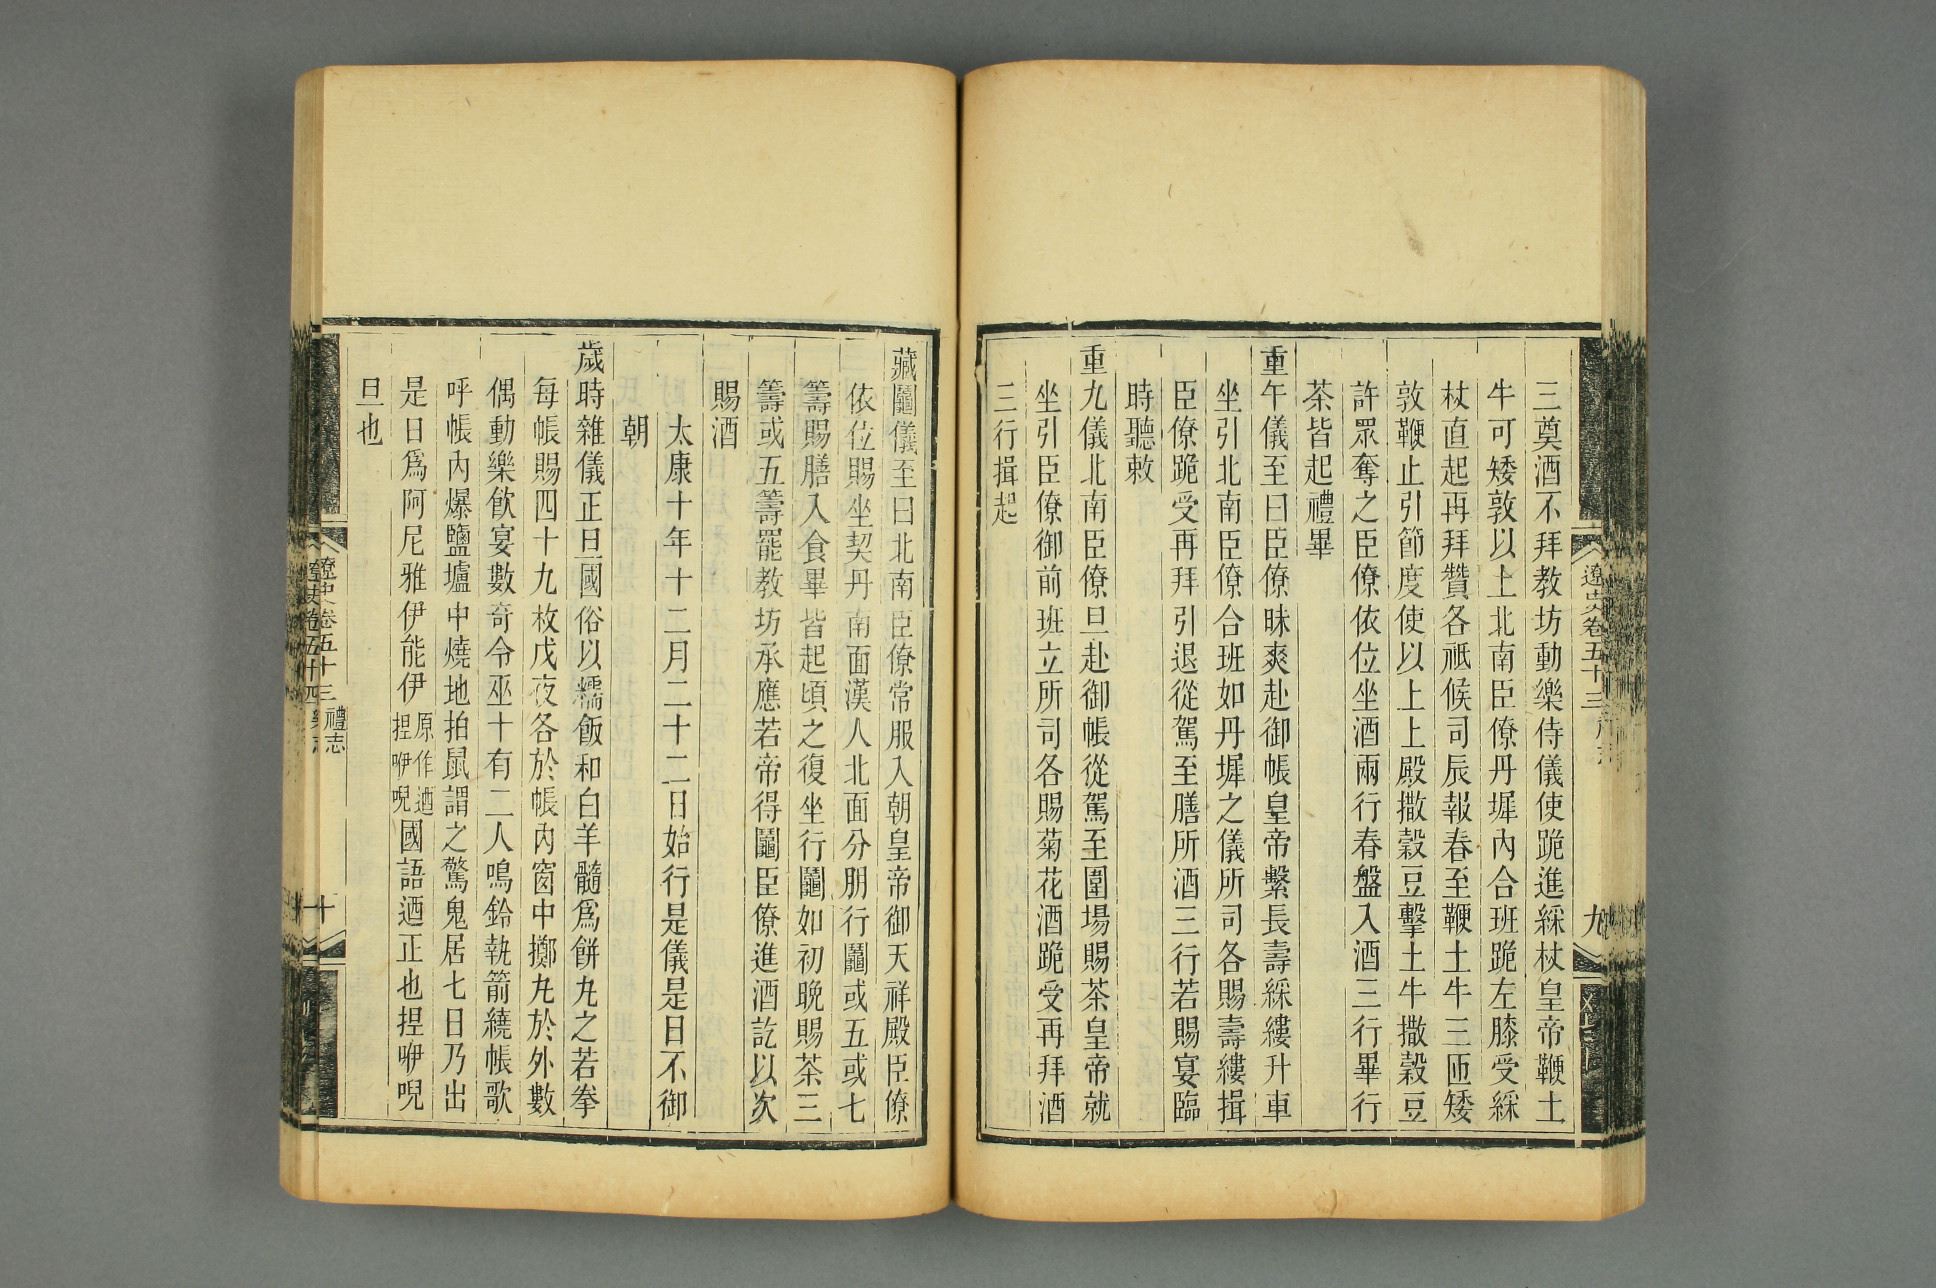 三奠酒不拜教坊動樂侍儀使跪進綵杖皇帝鞭土
牛可矮敦以上北南臣僚丹墀內合班跪左膝受綵
杖直起再拜贊各祗候司辰報春至鞭土牛三匝矮
敦鞭止引節度使以上上殿撒穀豆擊土牛撒穀豆
許眾奪之臣僚依位坐酒兩行春盤入酒三行畢行
茶皆起禮畢
重午儀至日臣僚昧爽赴御帳皇帝繫長壽綵縷升車
坐引北南臣僚合班如丹墀之儀所司各賜壽縷揖
臣僚跪受再拜引退從駕至膳所酒三行若賜宴臨
時聽敕
重九儀北南臣僚旦赴御帳從駕至圍場賜茶皇帝就
坐引臣僚御前班立所司各賜菊花酒跪受再拜酒
三行揖起
遼史卷五十三
九
藏鬮儀至日北南臣僚常服入朝皇帝御天祥殿臣僚
依位賜坐契丹南面漢人北面分朋行鬮或五或七
籌賜膳入食畢皆起頃之復坐行鬮如初晚賜茶三
籌或五籌罷教坊承應若帝得鬮臣僚進酒訖以次
賜酒
太康十年十二月二十二日始行是儀是日不御
朝
歲時雜儀正旦國俗以糯飯和白羊髓爲餅丸之若拳
每帳賜四十九枚戊夜各於帳內窗中擲丸於外數
偶動樂飲宴數奇令巫十有二人鳴鈴執箭繞帳歌
呼帳內爆鹽壚中燒地拍鼠謂之驚鬼居七日乃出
是日爲阿尼雅伊能伊原作迺捏咿唲國語迺正也捏咿唲
旦也
遼史卷五十三 禮志
十
遼史卷五十四